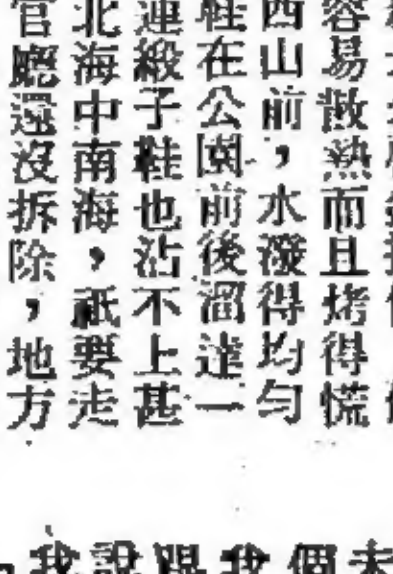 容易散熱而且烤得慌
西山前，水潑得均勻
鞋在公園前後溜達一
連緞子鞋也沾不上甚
北海中南海，祇要走
官廳還沒拆除，地方
個
我
跟
說
我